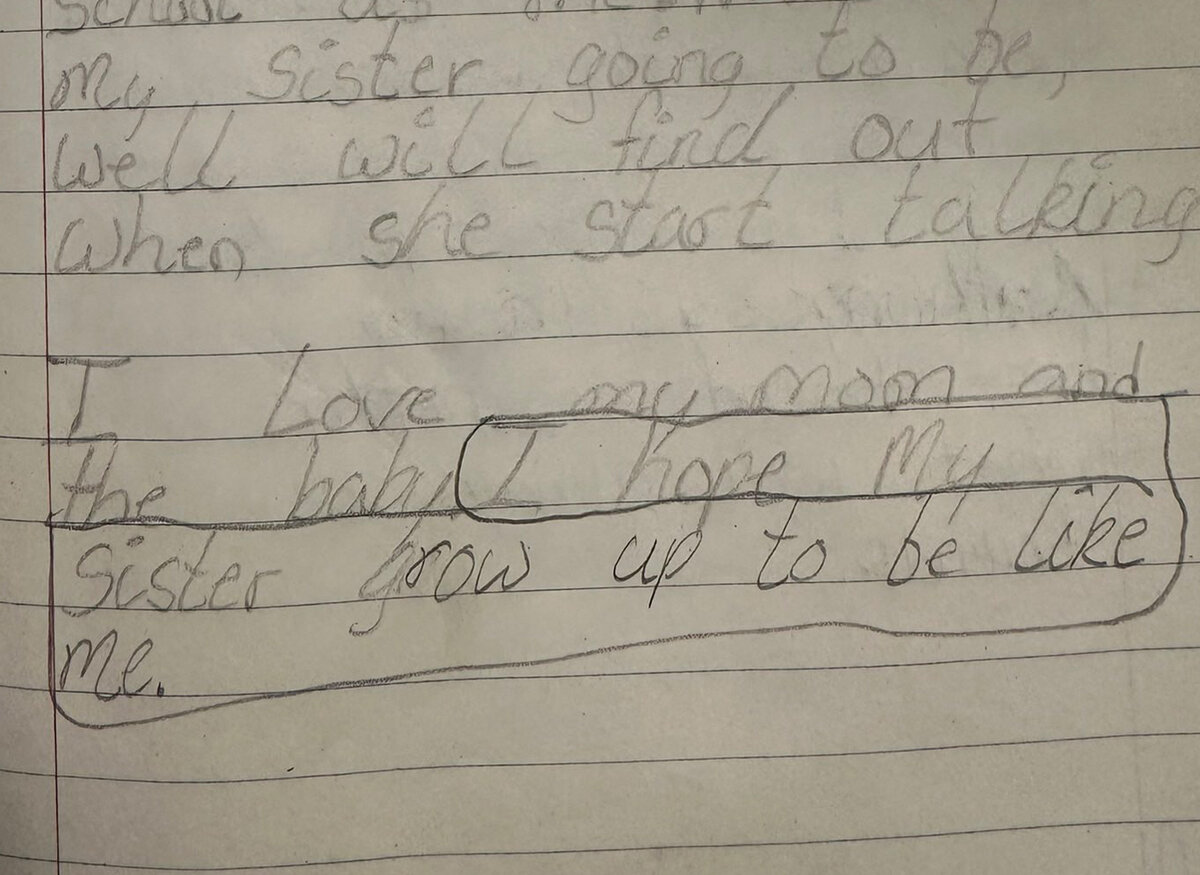 school as
my sister going to be,
well will find out
when she start talking
I Love my mom and
the baby I hope My
Sister grow up to be like
me.